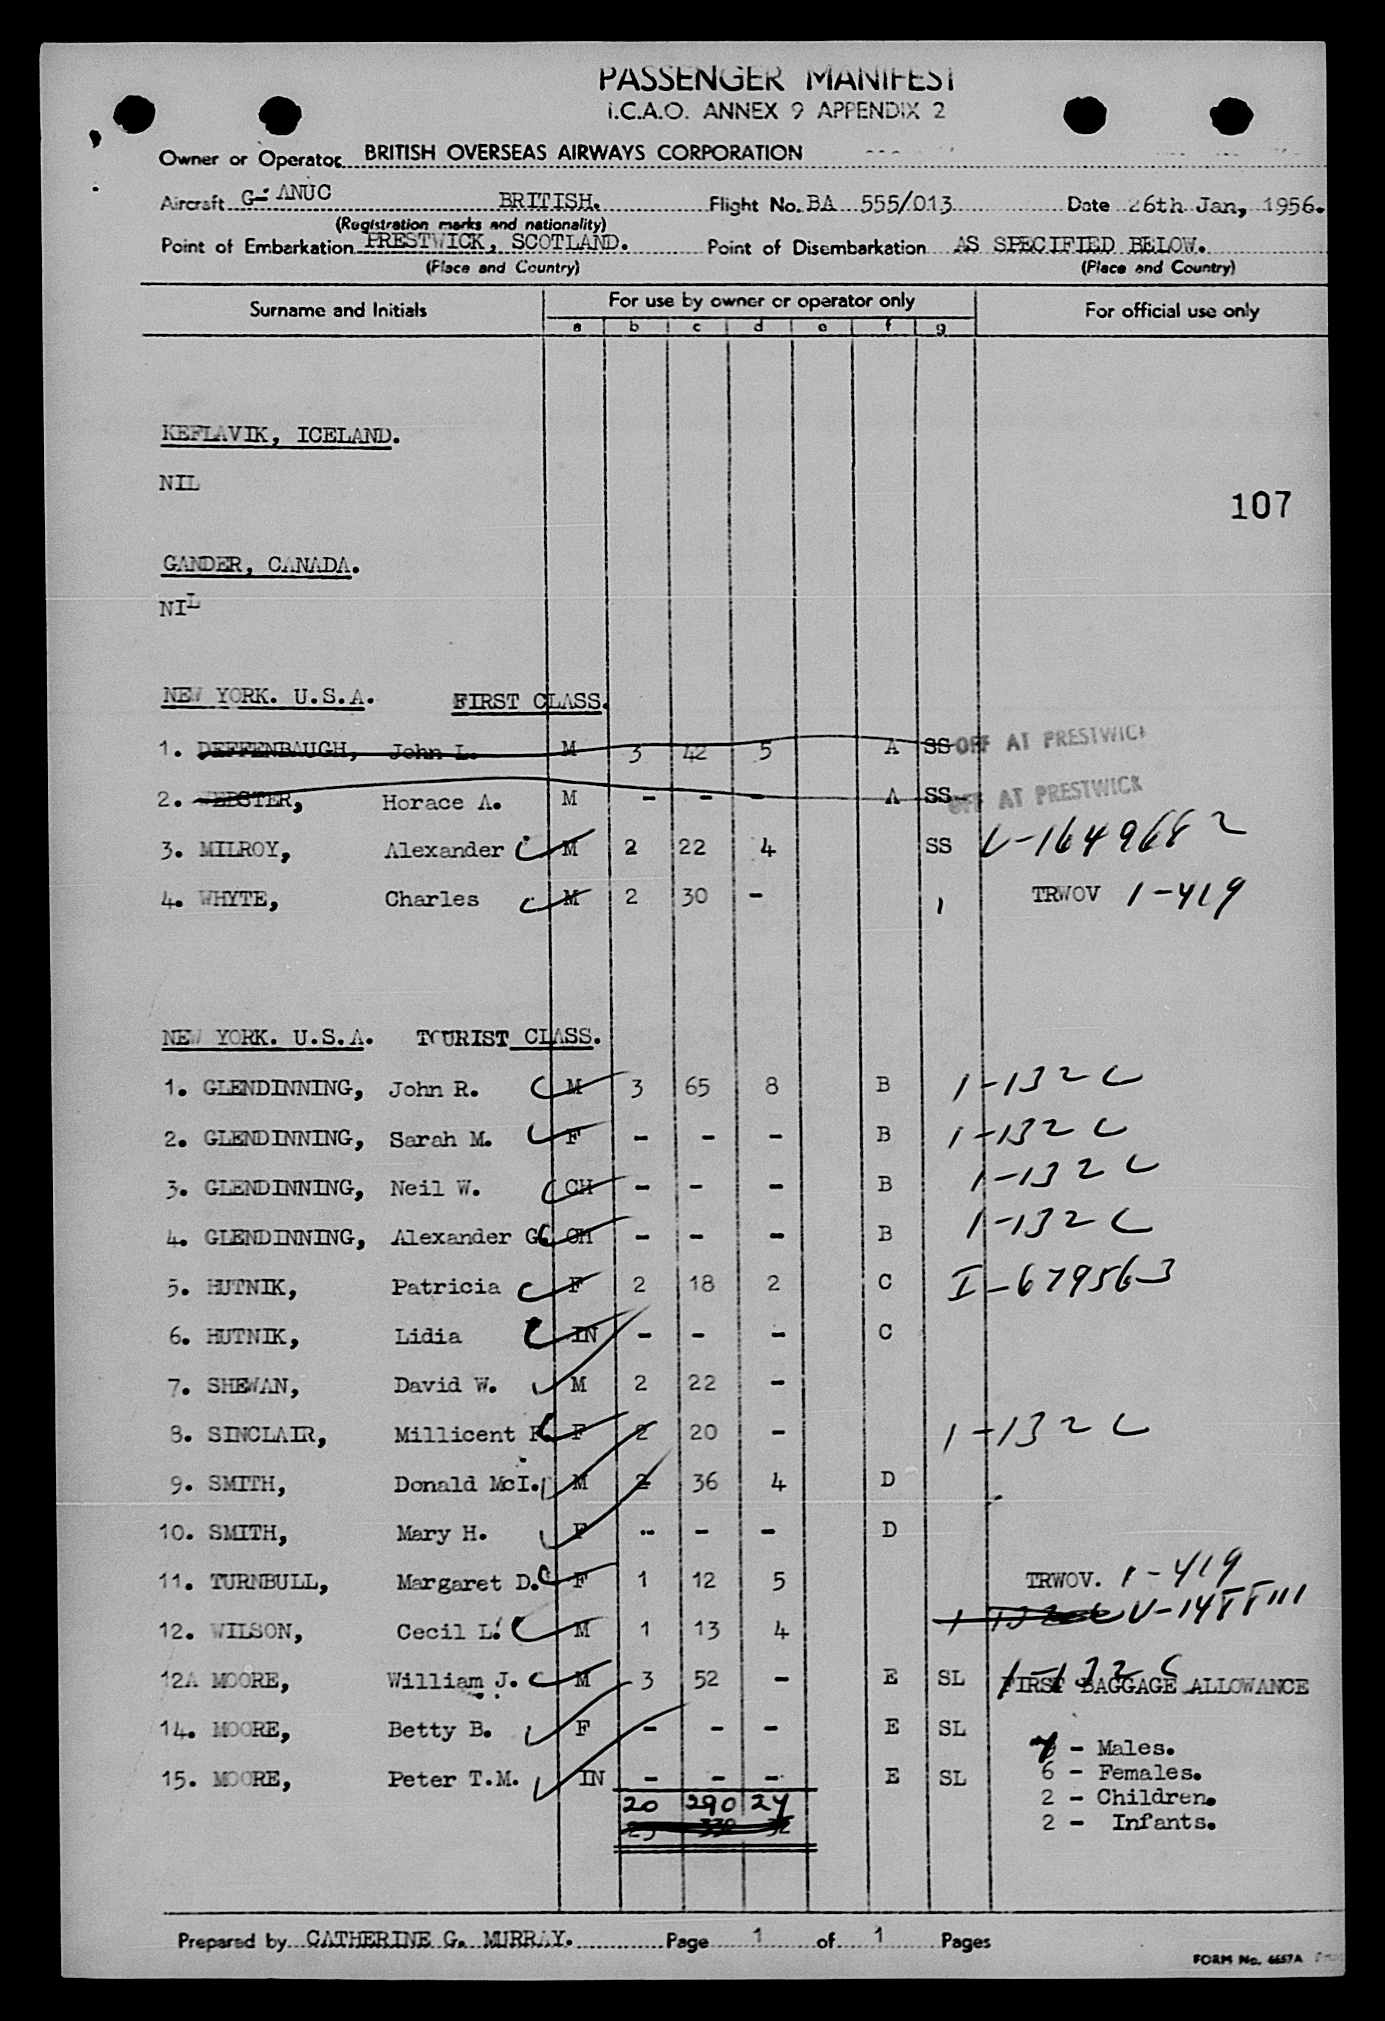 PASSENGER MANIFEST
I.C.A.O. ANNEX 9 APPENDIX 2
Owner or Operator BRITISH OVERSEAS AIRWAYS CORPORATION
Aircraft G-ANUC BRITISH. Flight No. BA 555/013 Date 26th Jan, 1956.
(Registration marks and nationality)
Point of Embarkation PRESTWICK, SCOTLAND. Point of Disembarkation AS SPECIFIED BELOW.
(Place and Country) (Place and Country)
Surname and Initials For use by owner or operator only For official use only
a b c d e f g
KEFLAVIK, ICELAND.
NIL
107
GANDER, CANADA.
NIL
NEW YORK. U.S.A. FIRST CLASS.
1. DEFFENBAUGH, John L. M 3 42 5 A SS OFF AT PRESTWICK
2. WEBSTER, Horace A. M - - - A SS OFF AT PRESTWICK
3. MILROY, Alexander M 2 22 4 SS V-1649682
4. WHYTE, Charles M 2 30 - TRWOV 1-419
NEW YORK. U.S.A. TOURIST CLASS.
1. GLENDINNING, John R. M 3 65 8 B 1-132 C
2. GLENDINNING, Sarah M. F - - - B 1-132 C
3. GLENDINNING, Neil W. CH - - - B 1-132 C
4. GLENDINNING, Alexander G. CH - - - B 1-132 C
5. HUTNIK, Patricia F 2 18 2 C I-679563
6. HUTNIK, Lidia IN - - - C
7. SHEWAN, David W. M 2 22 -
8. SINCLAIR, Millicent F 2 20 - 1-132 C
9. SMITH, Donald McI. M 2 36 4 D
10. SMITH, Mary H. F - - - D
11. TURNBULL, Margaret D. F 1 12 5 TRWOV. 1-419
12. WILSON, Cecil L. M 1 13 4 V-1488111
12A MOORE, William J. M 3 52 - E SL 1-132 C FIRST BAGGAGE ALLOWANCE
14. MOORE, Betty B. F - - - E SL
15. MOORE, Peter T.M. IN - - - E SL
- Males.
6 - Females.
2 - Children.
2 - Infants.
20 290 24
Prepared by CATHERINE G. MURRAY. Page 1 of 1 Pages
FORM No. 6657A